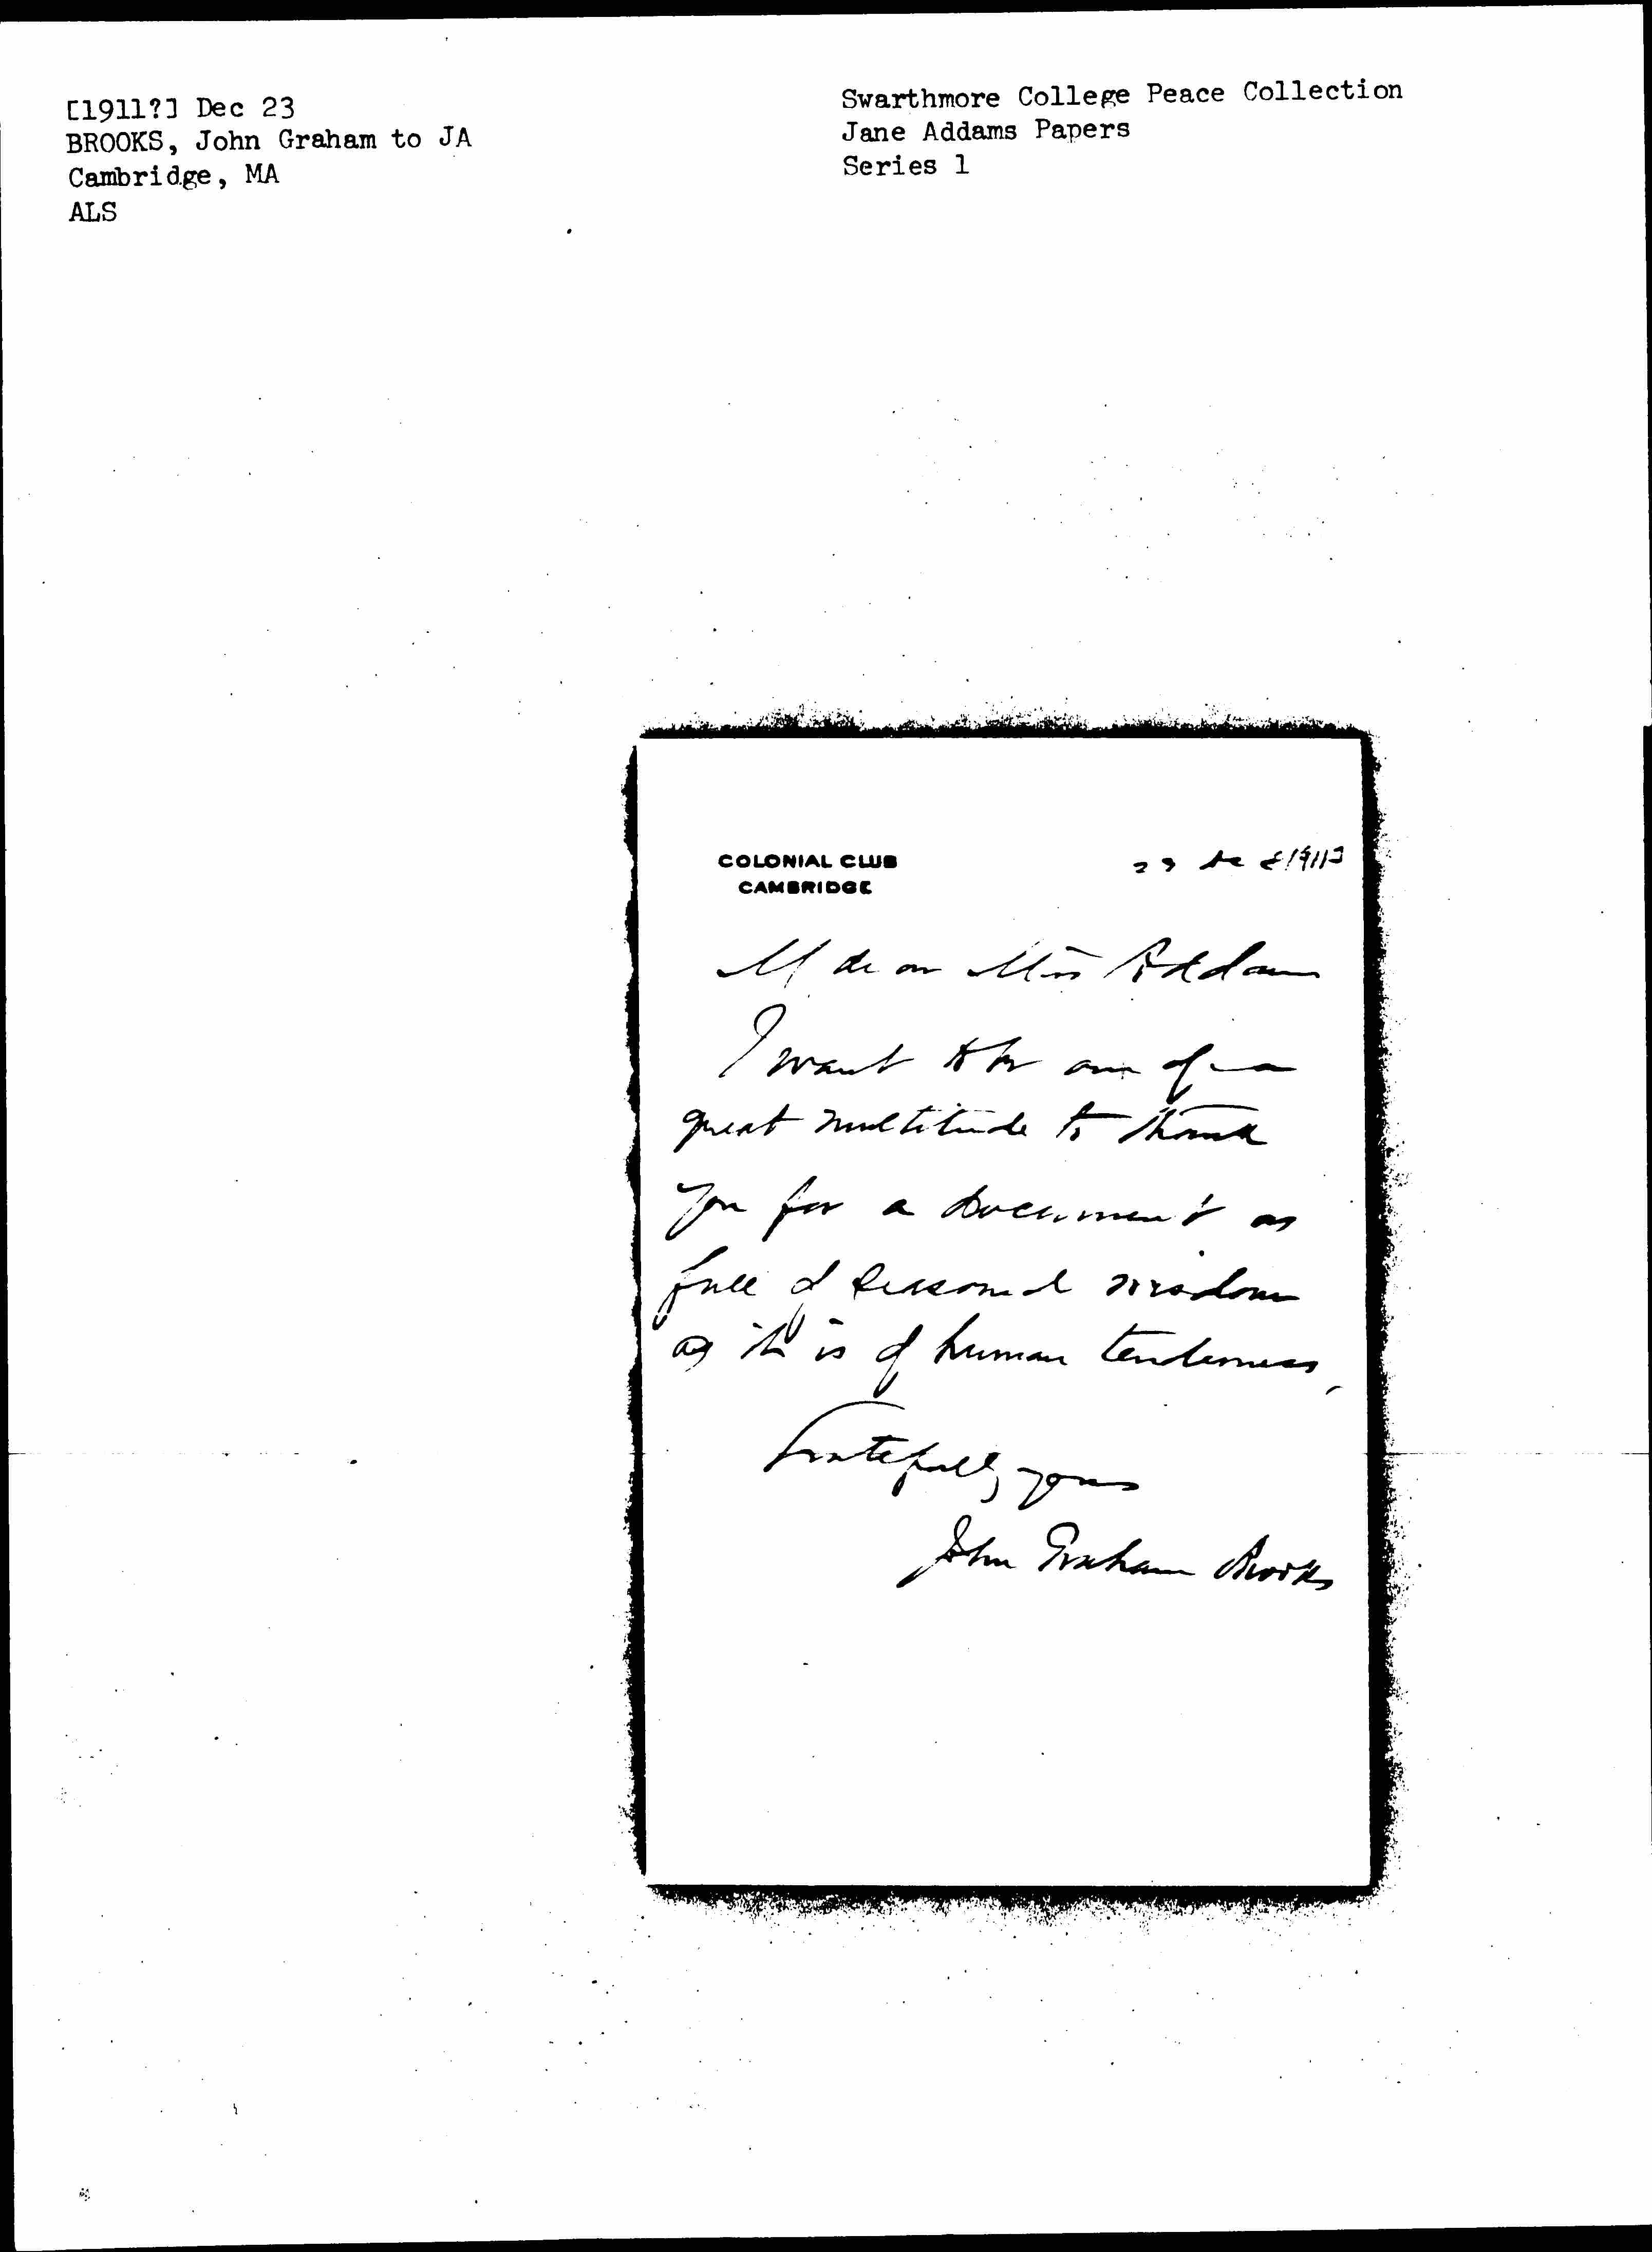 [1911?] Dec 23
BROOKS, John Graham to JA
Cambridge, MA
ALS
Swarthmore College Peace Collection
Jane Addams Papers
Series 1
COLONIAL CLUB
CAMBRIDGE
23 De [1911]
M dear Miss Addams
I want to be one of a
great multitude to thank
you for a document as
full of seasoned wisdom
as it is of human tenderness,
Gratefully yours
John Graham Brooks